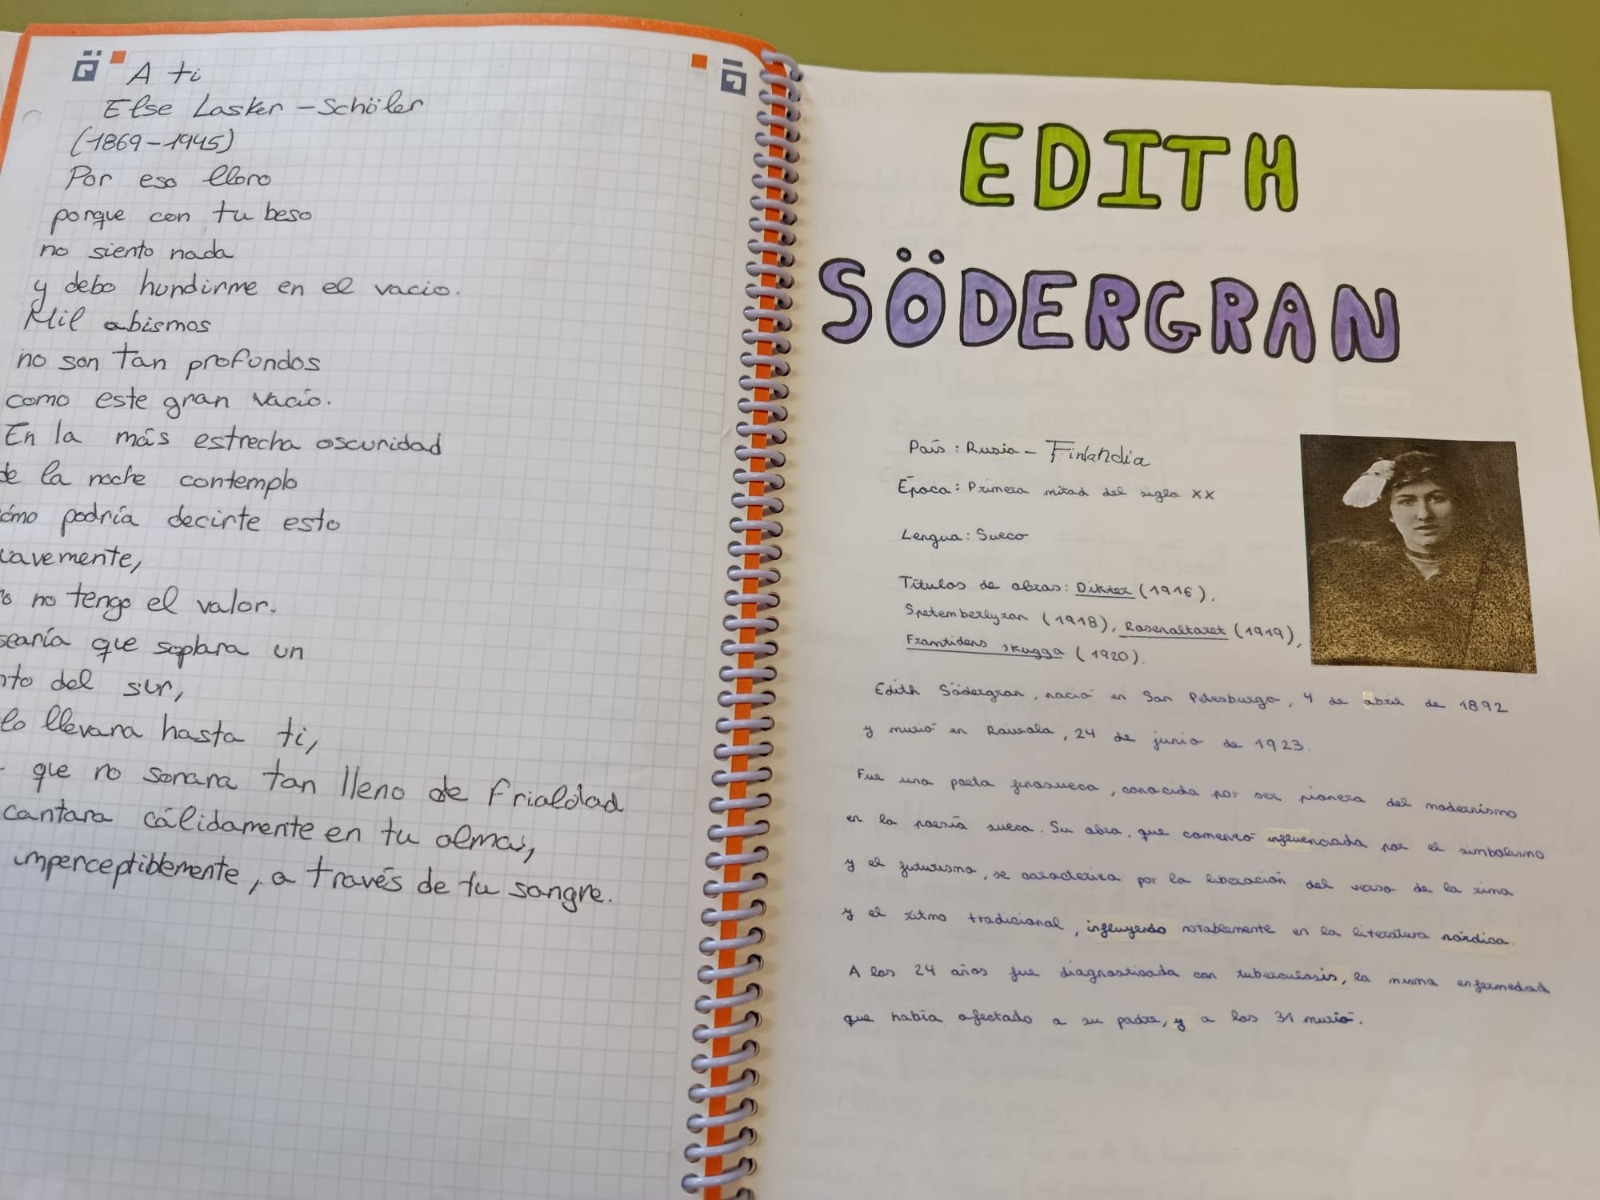 A ti
Else Lasker-Schöler
(1869-1945)
Por eso lloro
porque con tu beso
no siento nada
y debo hundirme en el vacio.
Mil abismos
no son tan profundos
como este gran vacío.
En la más estrecha oscuridad
de la noche contemplo
ómo podría decirte esto
uavemente,
no tengo el valor.
searía que soplara un
nto del sur,
lo llevara hasta ti,
que no sonara tan lleno de frialdad
cantara cálidamente en tu alma,
imperceptiblemente, a través de tu sangre.
EDITH
SÖDERGRAN
País: Rusia - Finlandia
Época: Primera mitad del siglo XX
Lengua: Sueco
Títulos de obras: Dikter (1916),
Spetemberlyran (1918), Rosenaltaret (1919),
Framtidens skugga (1920).
Edith Södergran, nació en San Petesburgo, 4 de abril de 1892
y murió en Raivola, 24 de junio de 1923.
Fue una poeta finosueca, conocida por ser pionera del modernismo
en la poesía sueca. Su obra, que comenzó influenciada por el simbolismo
y el futurismo, se caracteriza por la liberación del verso de la rima
y el ritmo tradicional, influyendo notablemente en la literatura nórdica.
A los 24 años fue diagnosticada con tuberculosis, la misma enfermedad
que había afectado a su padre, y a los 31 murió.